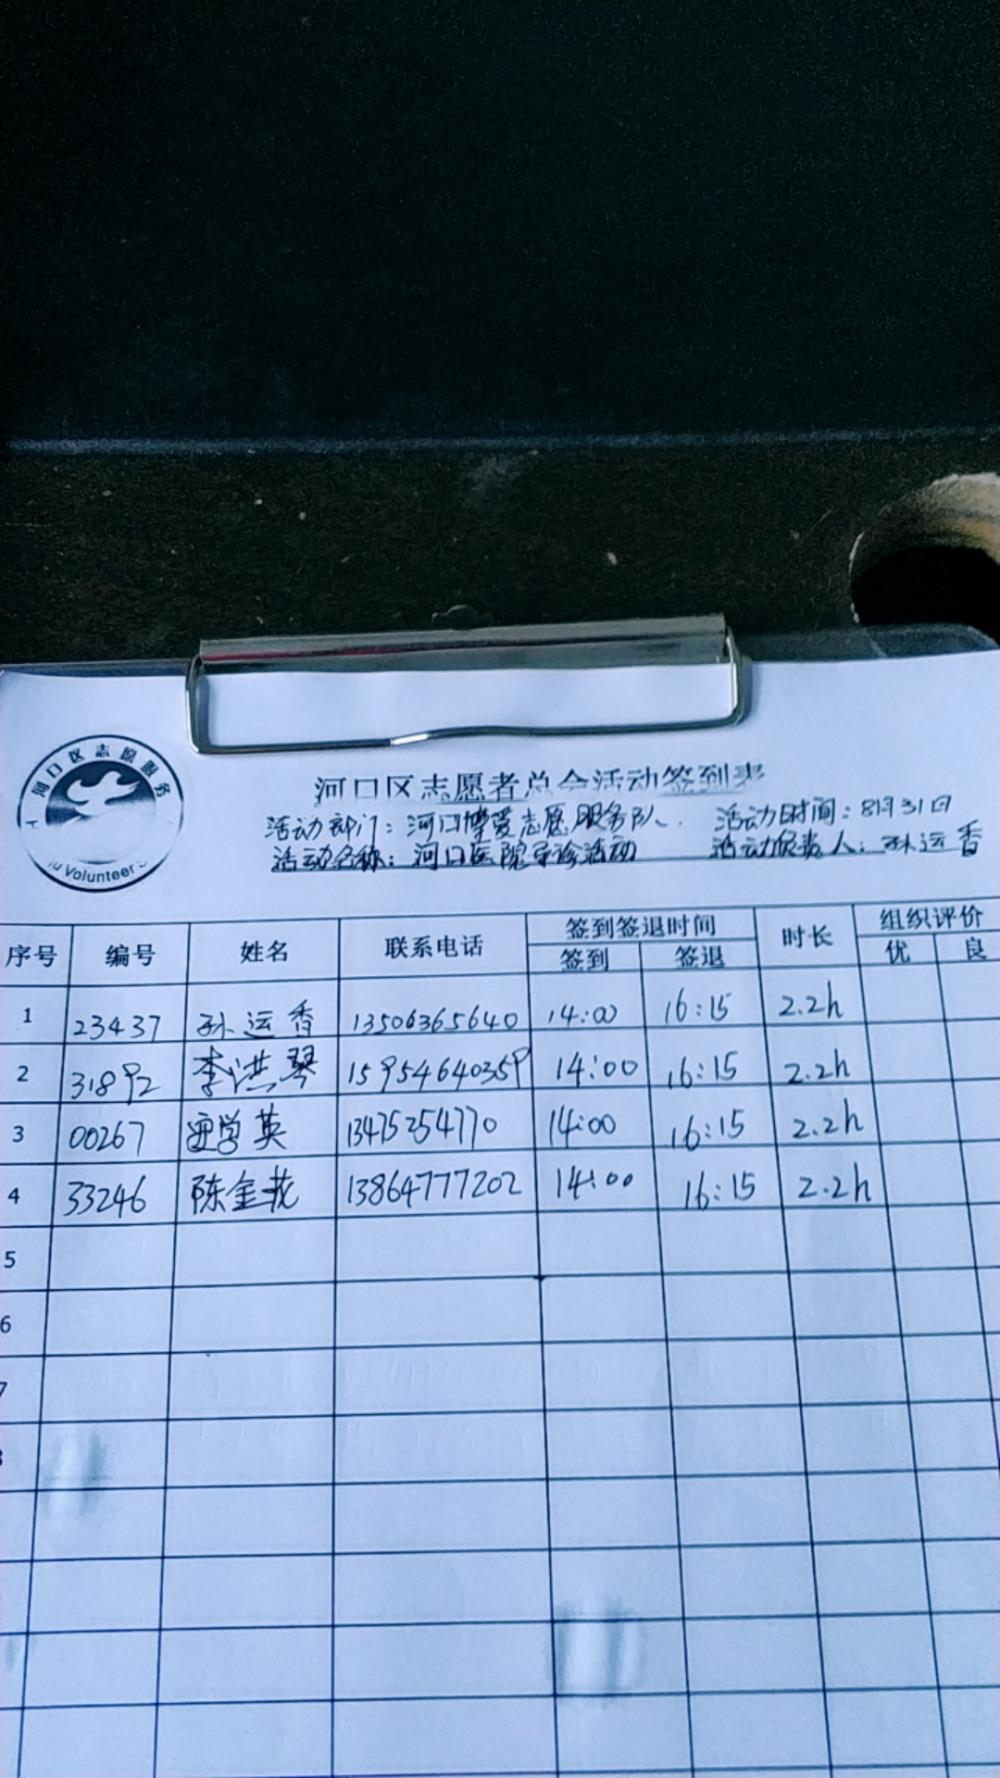 河口区志愿服务
Volunteer
河口区志愿者总会活动签到表
活动部门：河口博爱志愿服务队 活动时间：8月31日
活动名称：河口医院导诊活动 活动负责人：孙运香
序号 编号 姓名 联系电话 签到签退时间 时长 组织评价
签到 签退 优 良
1 23437 孙运香 13506365640 14:00 16:15 2.2h
2 31892 李洪琴 15954640359 14:00 16:15 2.2h
3 00267 学英 13475254770 14:00 16:15 2.2h
4 33246 陈金 13864777202 14:00 16:15 2.2h
5
6
7